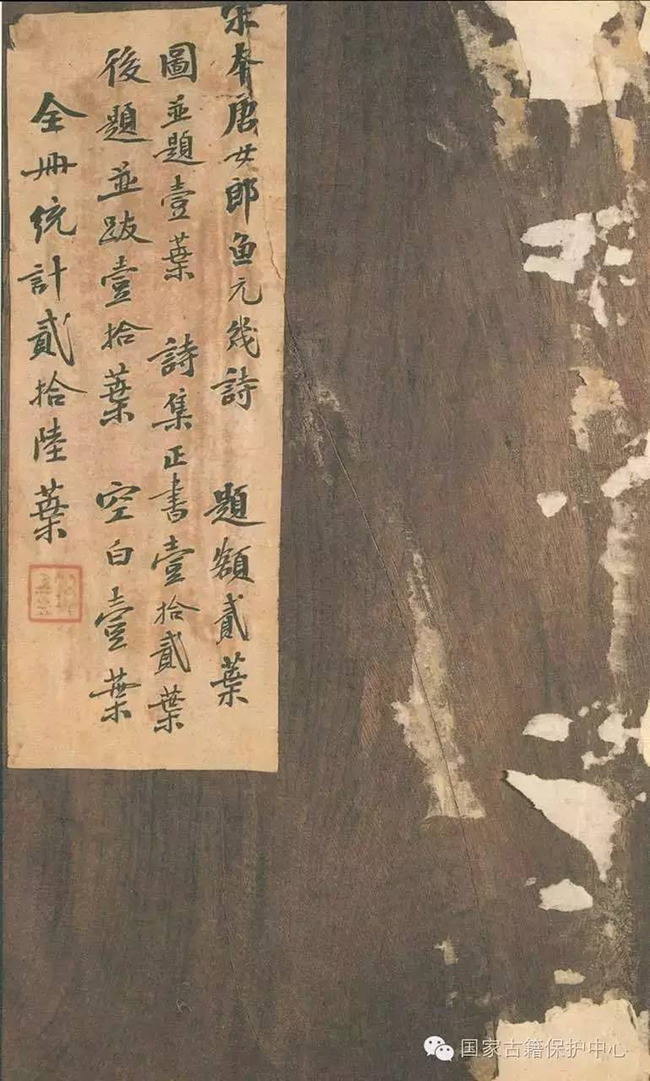 宋本唐女郎魚元幾詩 題額貳葉
圖並題壹葉 詩集正書壹拾貳葉
後題並跋壹拾葉 空白壹葉
全冊統計貳拾陸葉
国家古籍保护中心